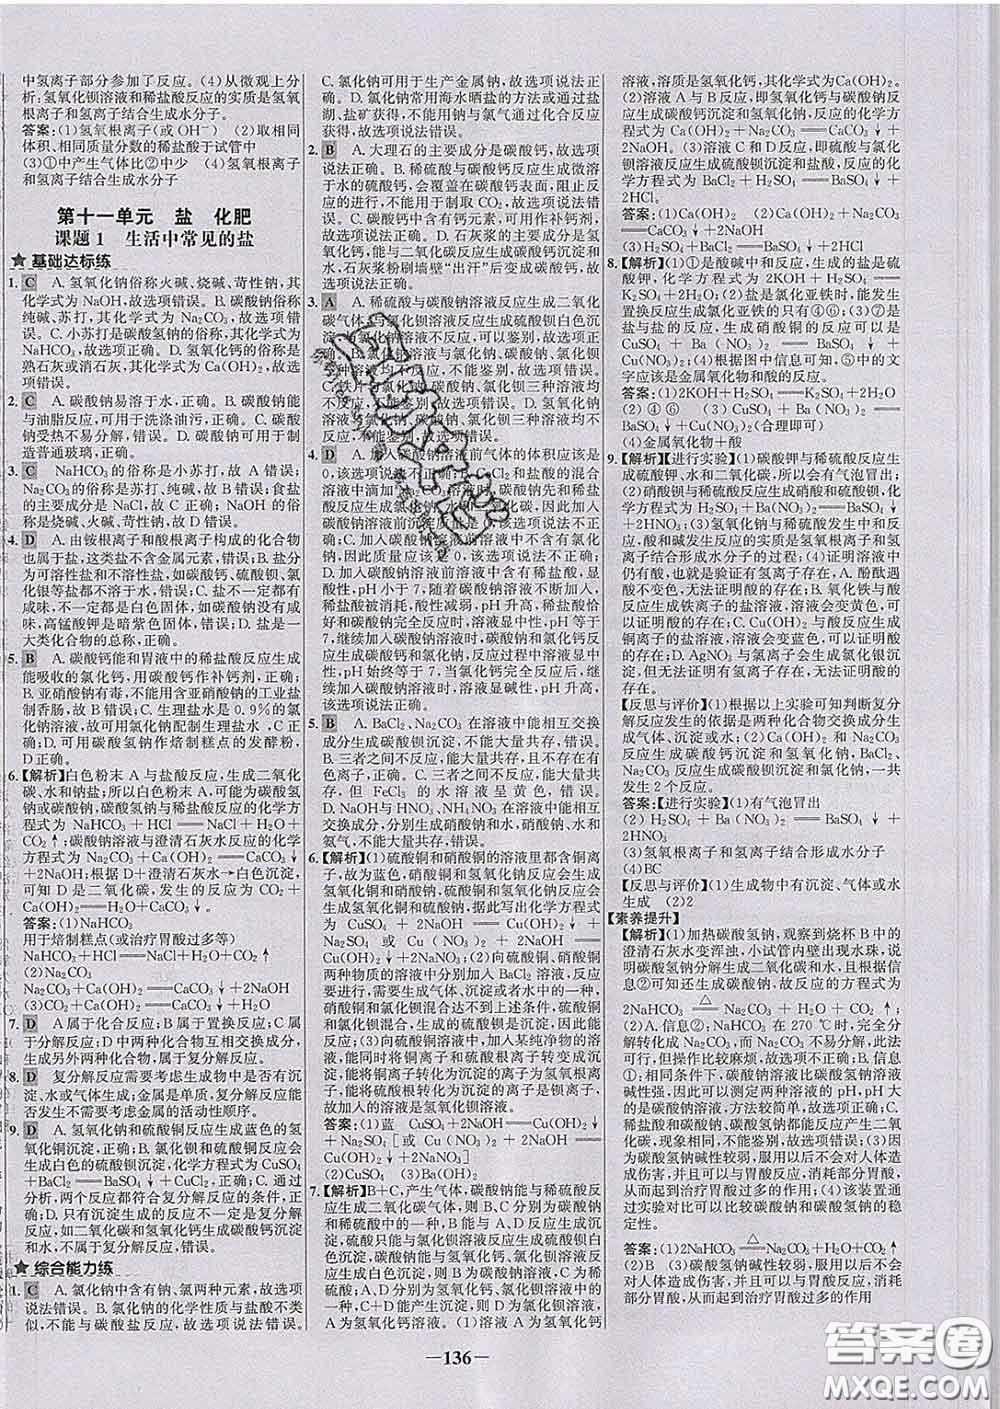 中氢离子部分参加了反应。(4)从微观上分
析:氢氧化钡溶液和稀盐酸反应的实质是氢氧
根离子和氢离子结合生成水分子。
答案:(1)氢氧根离子(或 OH⁻) (2)取相同
体积、相同质量分数的稀盐酸于试管中
(3)①中产生气体比②中少 (4)氢氧根离子
和氢离子结合生成水分子
第十一单元 盐 化肥
课题1 生活中常见的盐
★基础达标练
1. C A. 氢氧化钠俗称火碱、烧碱、苛性钠,其
化学式为 NaOH,故选项错误。B. 碳酸钠俗称
纯碱、苏打,其化学式为 Na₂CO₃,故选项错
误。C. 小苏打是碳酸氢钠的俗称,其化学式为
NaHCO₃,故选项正确。D. 氢氧化钙的俗称是
熟石灰或消石灰,其化学式为 Ca(OH)₂,故选
项错误。
2. C A. 碳酸钠易溶于水,正确。B. 碳酸钠能
与油脂反应,可用于洗涤油污,正确。C. 碳酸
钠受热不易分解,错误。D. 碳酸钠可用于制
造普通玻璃,正确。
3. C NaHCO₃ 的俗称是小苏打,故 A 错误;
Na₂CO₃ 的俗称是苏打、纯碱,故 B 错误;食盐
的主要成分是 NaCl,故 C 正确; NaOH 的俗
称是烧碱、火碱、苛性钠,故 D 错误。
4. D A. 由铵根离子和酸根离子构成的化合物
也叫盐,这类盐不含金属元素,错误;B. 盐分
为可溶性盐和不溶性盐,如碳酸钙、硫酸钡、氯
化银等盐都不溶于水,错误;C. 盐不一定都有
咸味,不一定都是白色固体,如碳酸钙没有咸
味,高锰酸钾是暗紫色固体,错误;D. 盐是一
大类化合物的总称,正确。
5. B A. 碳酸钙能和胃液中的稀盐酸反应生成
能吸收的氯化钙,用碳酸钙作补钙剂,正确。
B. 亚硝酸钠有毒,不能用含亚硝酸钠的工业盐
制香肠,故 B 错误。C. 生理盐水是 0.9%的氯
化钠溶液,故可用氯化钠配制生理盐水,C正确。
D. 可以用碳酸氢钠作焙制糕点的发酵粉,
D正确。
6.【解析】白色粉末 A 与盐酸反应,生成二氧化
碳、水和钠盐;所以白色粉末 A,可能为碳酸氢
钠或碳酸钠,碳酸氢钠与稀盐酸反应的化学方
程式为 NaHCO₃+HCl══NaCl+H₂O+
CO₂↑;碳酸钠溶液与澄清石灰水反应的化学
方程式为 Na₂CO₃+Ca(OH)₂══CaCO₃↓
+2NaOH;根据 D+澄清石灰水→白色沉淀,
可知 D 是二氧化碳,发生的反应为 CO₂+
Ca(OH)₂══CaCO₃↓+H₂O。
答案:(1)NaHCO₃
用于焙制糕点(或治疗胃酸过多等)
NaHCO₃+HCl══NaCl+H₂O+CO₂↑
(2)Na₂CO₃
Na₂CO₃+Ca(OH)₂══CaCO₃↓+2NaOH
(3)CO₂+Ca(OH)₂══CaCO₃↓+H₂O
7. D A 属于化合反应;B 属于置换反应;C 属
于分解反应;D 中两种化合物互相交换成分,
生成另外两种化合物,属于复分解反应。
8. D 复分解反应需要考虑生成物中是否有沉
淀、水或气体生成;金属是单质,复分解反应能
否发生不需要考虑金属的活动性顺序。
9. D A. 氢氧化钠和硫酸铜反应生成蓝色的氢
氧化铜沉淀,正确;B. 氯化钡和硫酸铜反应会
生成白色的硫酸钡沉淀,化学方程式为 CuSO₄
+BaCl₂══BaSO₄↓+CuCl₂,正确;C. 通过分
析,两个反应都符合复分解反应的条件,正确;
D. 只有沉淀生成不一定是复分解反应,
如二氧化碳和氢氧化钙生成碳酸钙沉淀和
水,不属于复分解反应,错误。
★综合能力练
1. C A. 氯化钠中含有钠、氯两种元素,故选项
说法错误。B. 氯化钠的化学性质与盐酸不类
似,不能与碳酸盐反应,故选项说法错误。
C. 氯化钠可用于生产金属钠,故选项说法正
确。D. 氯化钠常用海水晒盐的方法或通过盐
湖、盐矿获得,而不能用钠与氯气通过化合反应
获得,故选项说法错误。
2. B A. 大理石的主要成分是碳酸钙,故选项
说法正确。B. 稀硫酸与碳酸钙反应生成微溶
于水的硫酸钙,会覆盖在碳酸钙表面,阻止反
应的进行,不能用于制取 CO₂,故选项说法错
误。C. 碳酸钙中含有钙元素,可用作补钙剂,故
选项说法正确。D. 石灰浆的主要成分是氢氧化
钙,能与二氧化碳反应生成碳酸钙沉淀和水,
石灰浆粉刷墙壁“出汗”后变成碳酸钙,故选项
说法正确。
3. A A. 稀硫酸与碳酸钠溶液反应生成二氧化
碳气体,与氯化钡溶液反应生成硫酸钡白色沉
淀,与氯化钠溶液不反应,可以鉴别,故选项正
确。
4. D A. 加入碳酸钠溶液前气体的体积应该是
0,该选项说法不正确。
溶液中滴加
D. 加入碳酸钠溶液前,溶液中含有稀盐酸,
显酸性,pH 小于 7,随着碳酸钠溶液不断加入,稀
盐酸被消耗,酸性减弱,pH 升高,稀盐酸恰好
和碳酸钠完全反应时,溶液显中性,pH 等于
7,继续加入碳酸钠溶液时,碳酸钠和氯化钙反
应生成碳酸钙和氯化钠,反应过程中溶液显中性,
pH始终等于 7,当氯化钙完全反应后,继
续加入碳酸钠溶液时,溶液显碱性,pH 升高,
该选项说法正确。
5. B A. BaCl₂、Na₂CO₃ 在溶液中能相互交换
成分生成碳酸钡沉淀,不能大量共存,错误。
B. 三者之间不反应,能大量共存,且不存在
有色离子,正确。C. 三者之间不反应,能大量
共存,但 FeCl₃ 的水溶液呈黄色,错误。
D. NaOH 与 HNO₃、NH₄NO₃ 在溶液中能相
互交换成分,分别生成硝酸钠和水、硝酸钠和
氨气和水,不能大量共存,错误。
6.【解析】(1)硫酸铜和硝酸铜的溶液里都含有铜离
子,故为蓝色,硫酸铜和氢氧化钠反应会生成
氢氧化铜沉淀和硫酸钠,硝酸铜和氢氧化钠反
应会生成氢氧化铜沉淀和硝酸钠,据此写出化学方
程式为 CuSO₄+2NaOH══Cu(OH)₂↓+
Na₂SO₄ 或 Cu(NO₃)₂+2NaOH══
Cu(OH)₂↓+2NaNO₃;(2)向硫酸铜、硝酸铜
两种物质的溶液中分别加入 BaCl₂ 溶液反
应,需要生成气体、沉淀或者水中的一种,而硝
酸铜和氯化钡混合达不到上述条件,硫酸铜
和氯化钡混合,生成的硫酸钡是沉淀,因此能
反应;(3)向硫酸铜溶液中,加入某纯净物的溶
液,同时能将铜离子和硫酸根离子转变成沉淀,
能将铜离子转化为沉淀的离子是氢氧根离子,
能将硫酸根离子转化为沉淀的离子是钡离子,
故加入的溶液是氢氧化钡溶液。
答案:(1)蓝 CuSO₄+2NaOH══Cu(OH)₂↓
+Na₂SO₄[或 Cu(NO₃)₂+2NaOH══
Cu(OH)₂↓+2NaNO₃]
(2)CuSO₄ (3)Ba(OH)₂
7.【解析】B+C,产生气体,碳酸钠能与稀硫酸反
应生成二氧化碳气体,则 B、C 分别为碳酸钠
和硫酸中的一种,B 能与 A、D 反应生成沉淀,
硫酸只能与氯化钡溶液反应生成沉淀,而碳酸
钠溶液与氢氧化钙、氯化钡溶液均能反应生成
沉淀,则 B 是碳酸钠溶液,C 为稀硫酸;A、D
分别为氢氧化钙溶液和氯化钡溶液中
的一种,C+D 能产生沉淀,则 D 为氯化钡溶液,
A 为氢氧化钙溶液。(1)溶液 A 为氢氧化钙
溶液,溶质是氢氧化钙,其化学式为Ca(OH)₂。
(2)溶液 A 与 B 反应,即氢氧化钙与碳酸钠反
应生成碳酸钙沉淀和氢氧化钠,反应的化学方
程式为 Ca(OH)₂+Na₂CO₃══CaCO₃↓+
2NaOH。(3)溶液 C 和 D 反应,即硫酸与氯化
钡溶液反应生成硫酸钡沉淀和盐酸,反应的化
学方程式为 BaCl₂+H₂SO₄══BaSO₄↓+
2HCl。
答案:(1)Ca(OH)₂ (2)Ca(OH)₂+Na₂CO₃
══CaCO₃↓+2NaOH
(3)H₂SO₄+BaCl₂══BaSO₄↓+2HCl
8.【解析】(1)①是酸碱中和反应,生成的盐是硫
酸钾,化学方程式为 2KOH+H₂SO₄══
K₂SO₄+2H₂O;(2)盐是氯化亚铁时,能发生
置换反应生成氯化亚铁的有④⑥;(3)⑦是
盐与盐的反应,生成硝酸铜的反应可以是
CuSO₄+Ba(NO₃)₂══BaSO₄↓+
Cu(NO₃)₂;(4)根据图中信息可知,⑤中的文
字应该是金属氧化物和酸的反应。
答案:(1)2KOH+H₂SO₄══K₂SO₄+2H₂O
(2)④⑥ (3)CuSO₄+Ba(NO₃)₂══
BaSO₄↓+Cu(NO₃)₂(合理即可)
(4)金属氧化物+酸
9.【解析】【进行实验】(1)碳酸钾与稀硫酸反应生
成硫酸钾、水和二氧化碳,所以会有气泡冒出;
(2)硝酸钡与稀硫酸反应生成硫酸钡和硝酸,
化学方程式为 H₂SO₄+Ba(NO₃)₂══BaSO₄↓
+2HNO₃;(3)氢氧化钠与硫酸发生中和反
应,酸和碱发生反应的实质是氢氧根离子和氢
离子结合形成水分子的过程;(4)证明溶液中
仍有酸,也就是验证有氢离子存在,A. 酚酞遇
酸不变色,无法证明酸的存在;B. 氧化铁与酸
反应生成铁离子的盐溶液,溶液变黄,可以证
明酸的存在;C. Cu(OH)₂ 与酸反应生成含有
铜离子的盐溶液,溶液会变蓝色,可以证明酸
的存在;D. AgNO₃ 与氯离子会生成氯化银沉
淀,与氢离子不反应,无法证明酸的存在。
【反思与评价】(1)根据以上实验可知判断复分
解反应发生的依据是两种化合物交换成分生
成沉淀、气体或水;(2)Ca(OH)₂ 和 Na₂CO₃
反应生成碳酸钙沉淀和氢氧化钠,BaCl₂、
Na₂CO₃ 反应生成碳酸钡沉淀和氯化钠,一共
发生 2 个反应。
答案:【进行实验】(1)有气泡冒出
(2)H₂SO₄+Ba(NO₃)₂══BaSO₄↓+
2HNO₃
(3)氢氧根离子和氢离子结合形成水分子
(4)BC
【反思与评价】(1)生成物中有沉淀、气体或水
生成 (2)2
【素养提升】
【解析】(1)加热碳酸氢钠,观察到烧杯 B 中的
澄清石灰水变浑浊,小试管内壁出现水珠,说
明碳酸氢钠分解生成二氧化碳和水;根据信
息②可知还生成碳酸钠,故反应的方程式为
2NaHCO₃══△Na₂CO₃+H₂O+CO₂↑;
(2)A. 信息②,NaHCO₃ 在 270 ℃时,完全分
解转化成 Na₂CO₃,而 Na₂CO₃ 不易分解,此
实验可行,但操作比较麻烦,故不选;B. 信息
①,相同条件下,碳酸钠溶液比碳酸氢钠溶液
碱性强,因此可以测定两种溶液的 pH,pH 大
的是碳酸钠溶液,方法较简单,故正确;C. 与
稀盐酸和碳酸钠、碳酸氢钠都能反应产生二氧
化碳,现象相同,不易判断,故错误;(3)因为
碳酸氢钠碱性较弱,服用以后不会对人体造
成伤害,并且与胃酸反应,消耗部分胃酸,从
而起到治疗胃酸过多的作用;(4)该装置通过
实验对比可以比较碳酸钠和碳酸氢钠的稳
定性。
答案:(1)2NaHCO₃══△Na₂CO₃+H₂O+CO₂↑
(2)B (3)碳酸氢钠碱性较弱,服用以后不会
对人体造成伤害,并与胃酸反应,消耗
部分胃酸,从而起到治疗胃酸过多的作用
—136—
答案圈
MXQE.COM